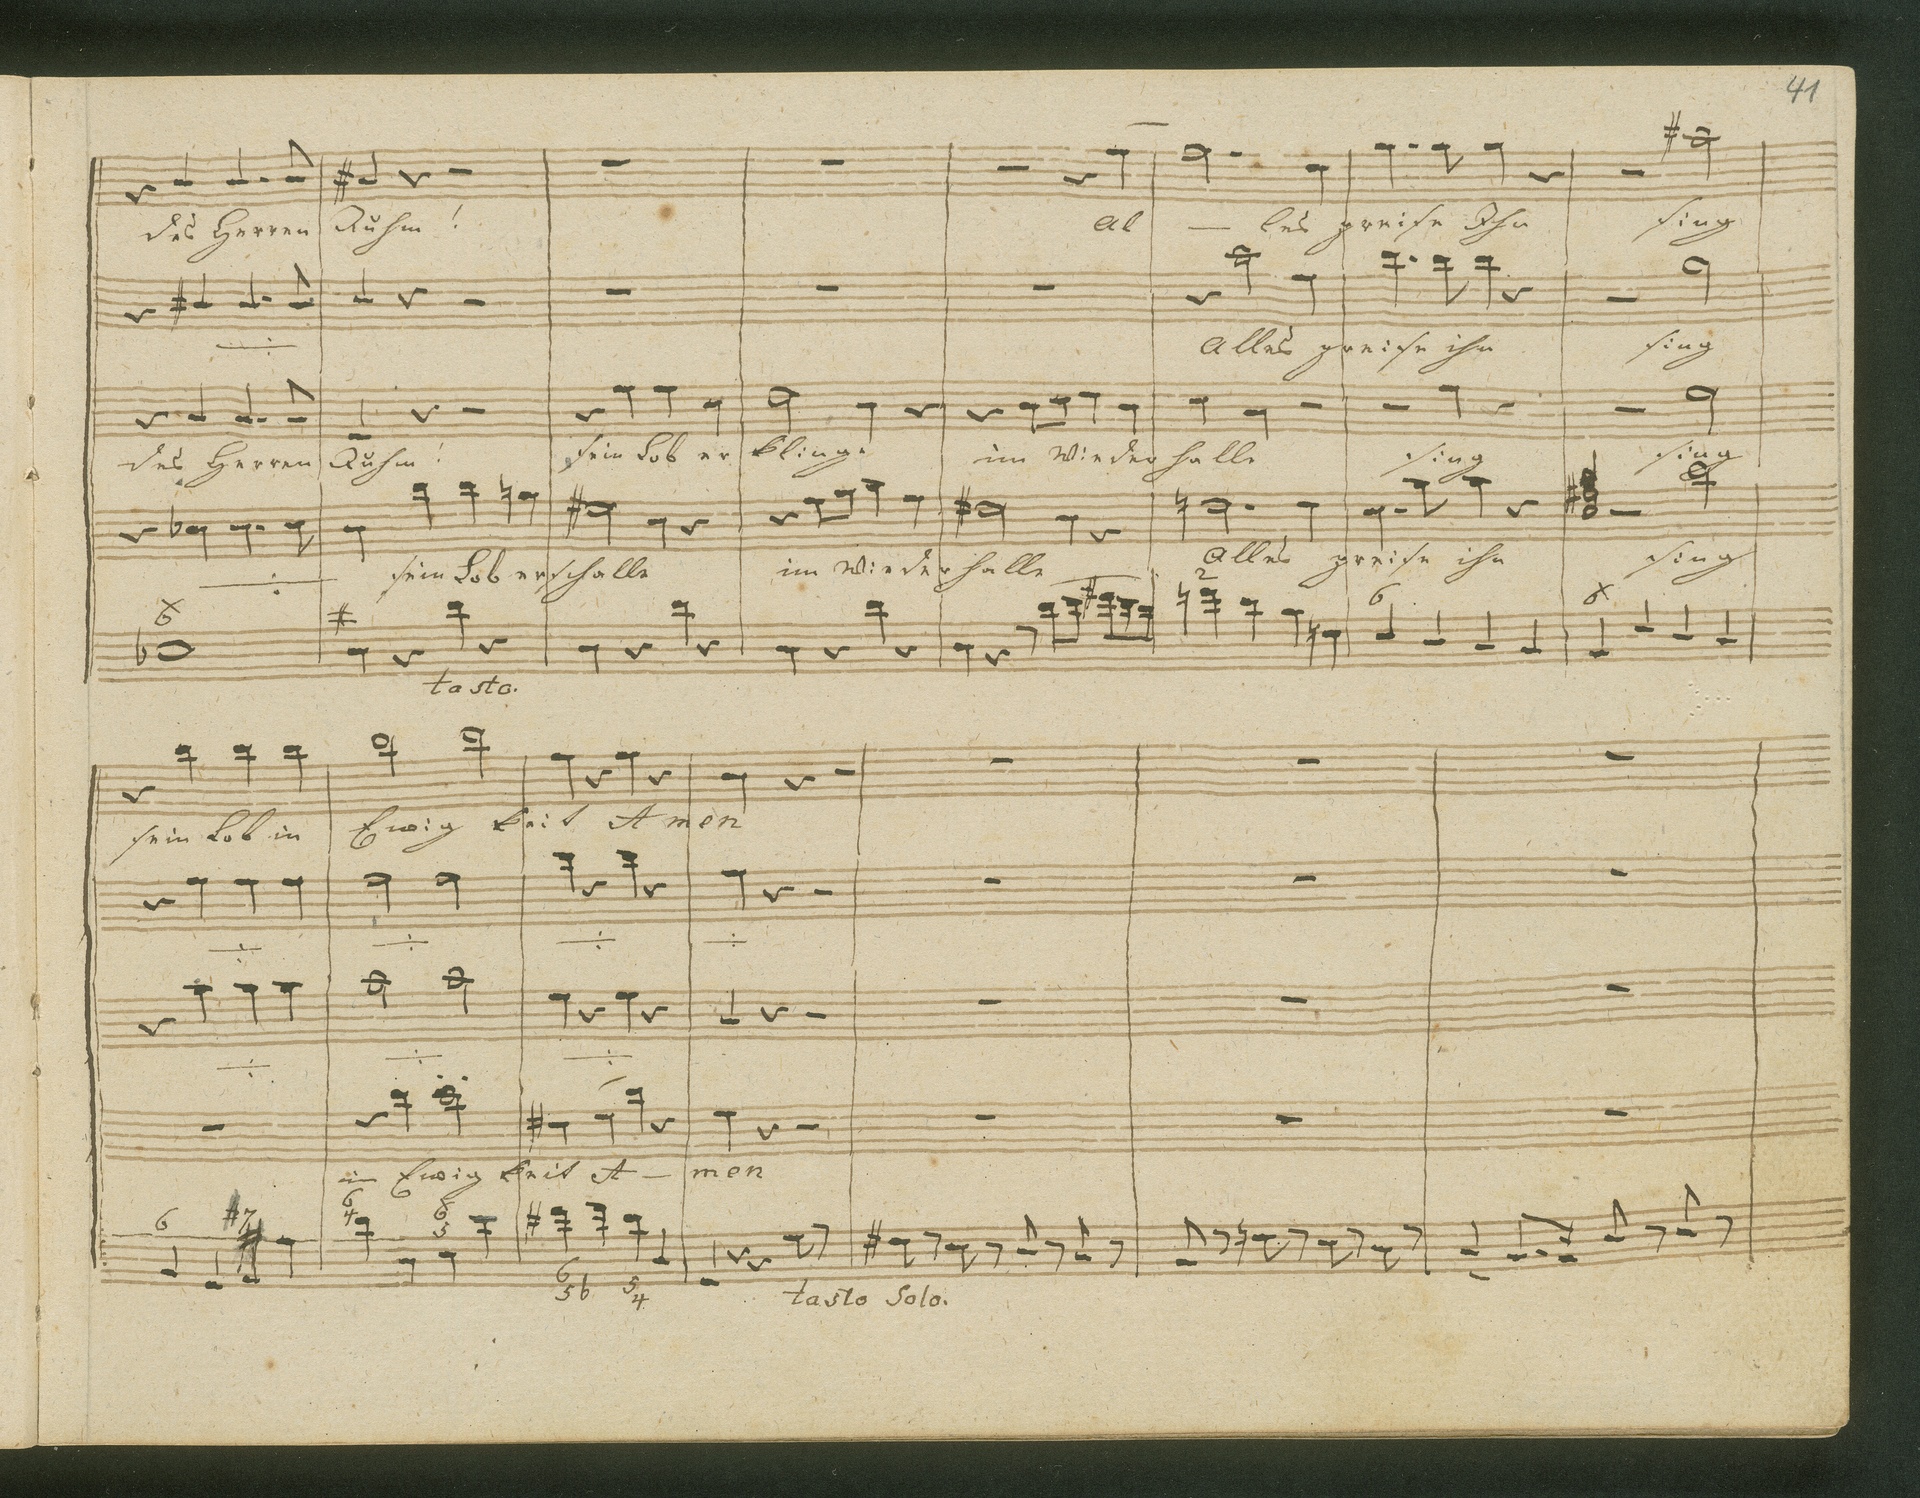 41
des Herren Ruhm! Al — les preise Ihn sing
Alles preise ihn sing
des Herren Ruhm! sein Lob er klinge im Wieder halle sing sing
sein Lob erschalle im Wieder halle Alles preise ihn sing
2
6 6 6
tasto.
sein Lob in Ewig keit Amen
in Ewig keit A — men
6 #7 6 4 6 5
6 5b 5 4
tasto Solo.